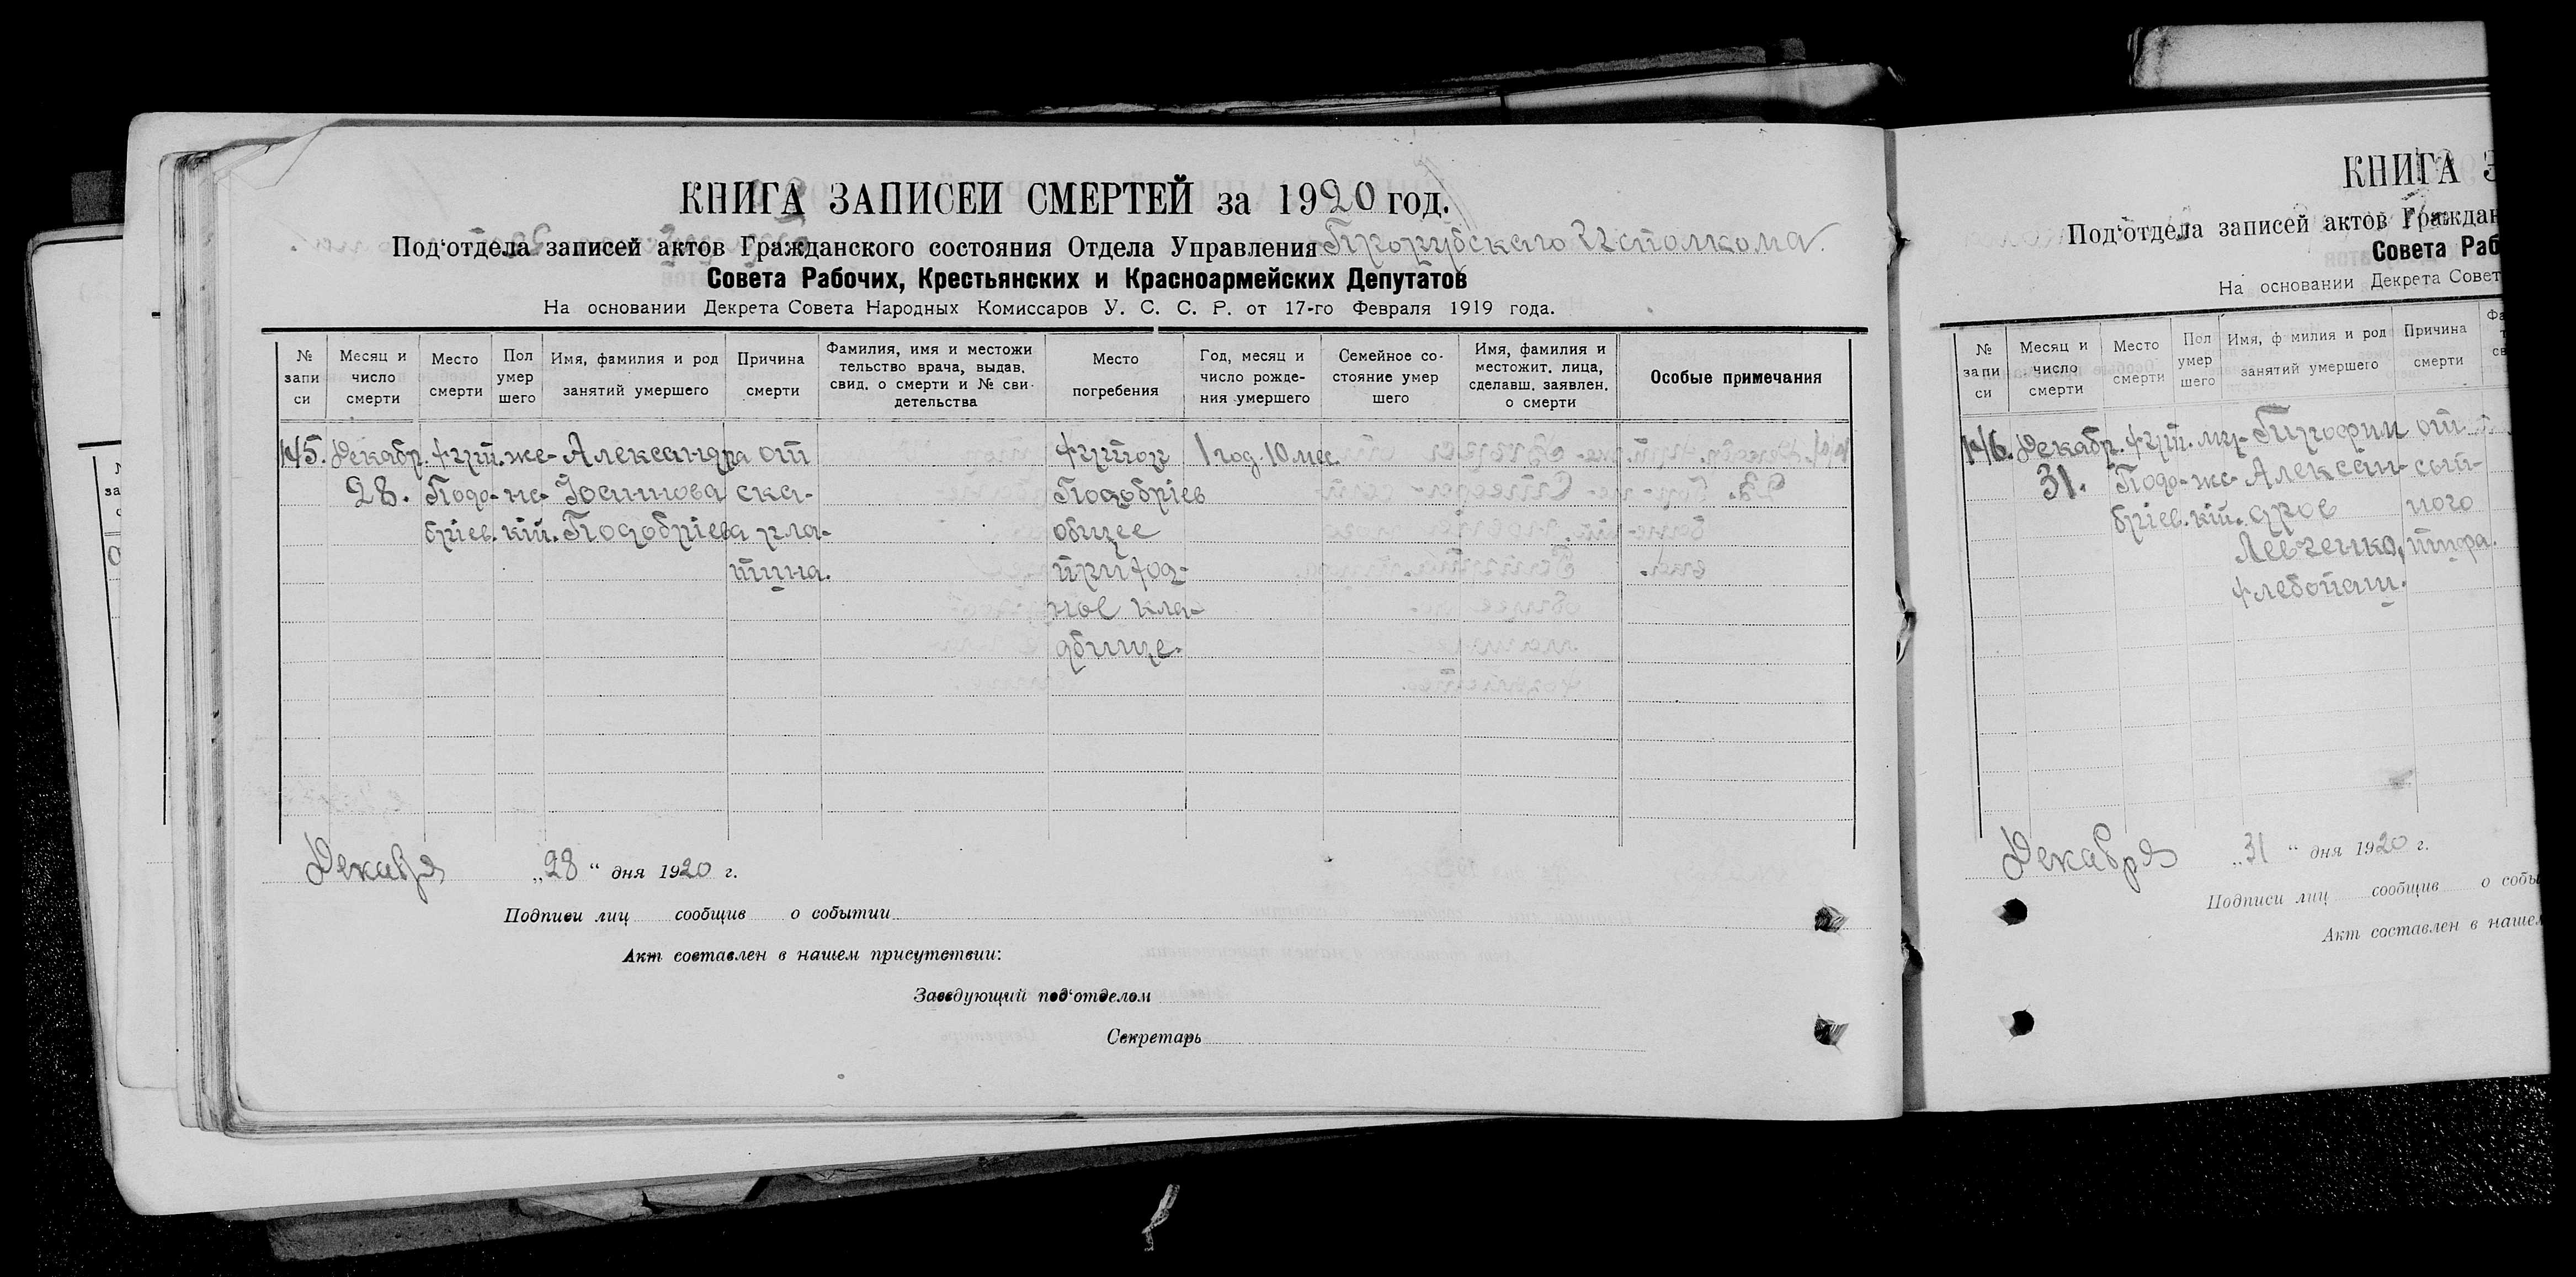 КНИГА ЗАПИСЕЙ СМЕРТЕЙ за 1920 год.
Под‘отдела записей актов Гражданского состояния Отдела Управления Исполкома.
Совета Рабочих, Крестьянских и Красноармейских Депутатов
На основании Декрета Совета Народных Комиссаров У. С. С. Р. от 17-го Февраля 1919 года.
№ запи си
Месяц и число смерти
Место смерти
Пол умер шего
Имя, фамилия и род занятий умершего
Причина смерти
Фамилия, имя и местожи тельство врача, выдав. свид. о смерти и № сви- детельства
Место погребения
Год, месяц и число рожде- ния умершего
Семейное со- стояние умер шего
Имя, фамилия и местожит. лица, сделавш. заявлен. о смерти
Особые примечания
145. Декабр. хут. же- Александра от хутор 1 год 10 мес.
28. Подо- нс- Иоаннова ска-
бріев. кій. Подобріева рла-
общее
тина. приход-
ное кла-
дбище.
Декабря „28“ дня 1920 г.
Подписи лиц сообщив о событии
Акт составлен в нашем присутствии:
Заведующий под‘отделом
Секретарь
КНИГА З
Под‘отдела записей актов Граждан
Совета Раб
На основании Декрета Совет
№ запи си
Месяц и число смерти
Место смерти
Пол умер шего
Имя, фамилия и род занятий умершего
Причина смерти
146. Декабр. хут. му- от
31. Подо- же- Алексан- сып-
бріев. кій. дров ного
Левченко, тифа.
хлебопаш.
Декабря „31“ дня 1920 г.
Подписи лиц сообщив о собы
Акт составлен в нашем